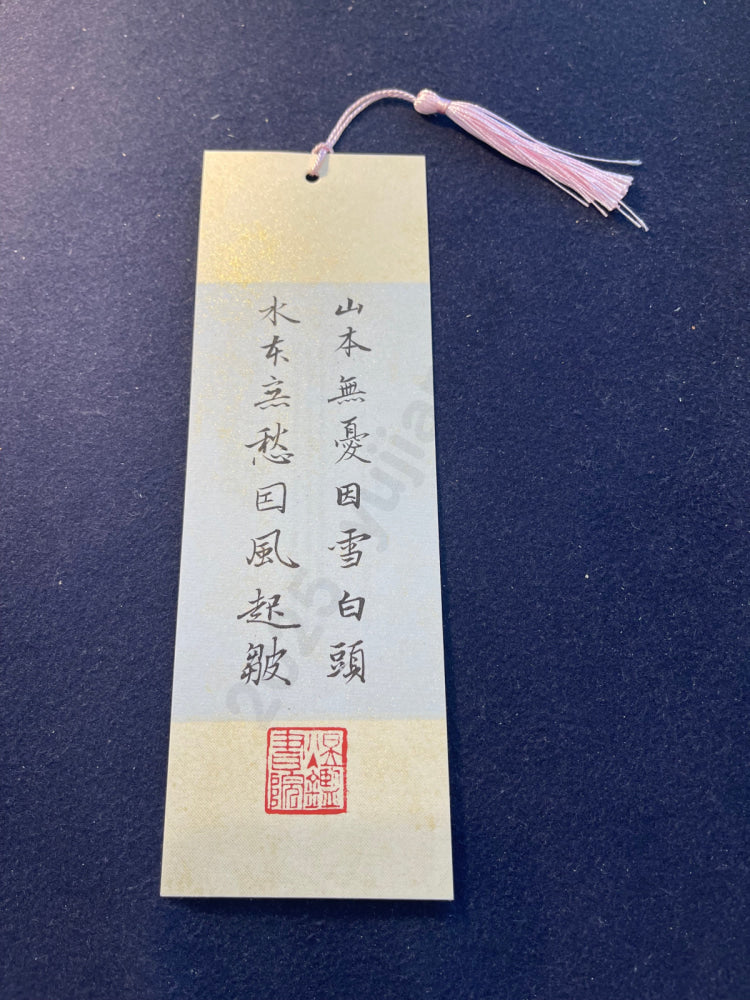 山本無憂因雪白頭
水本無愁因風起皺
鑑
書院
2025 yujia